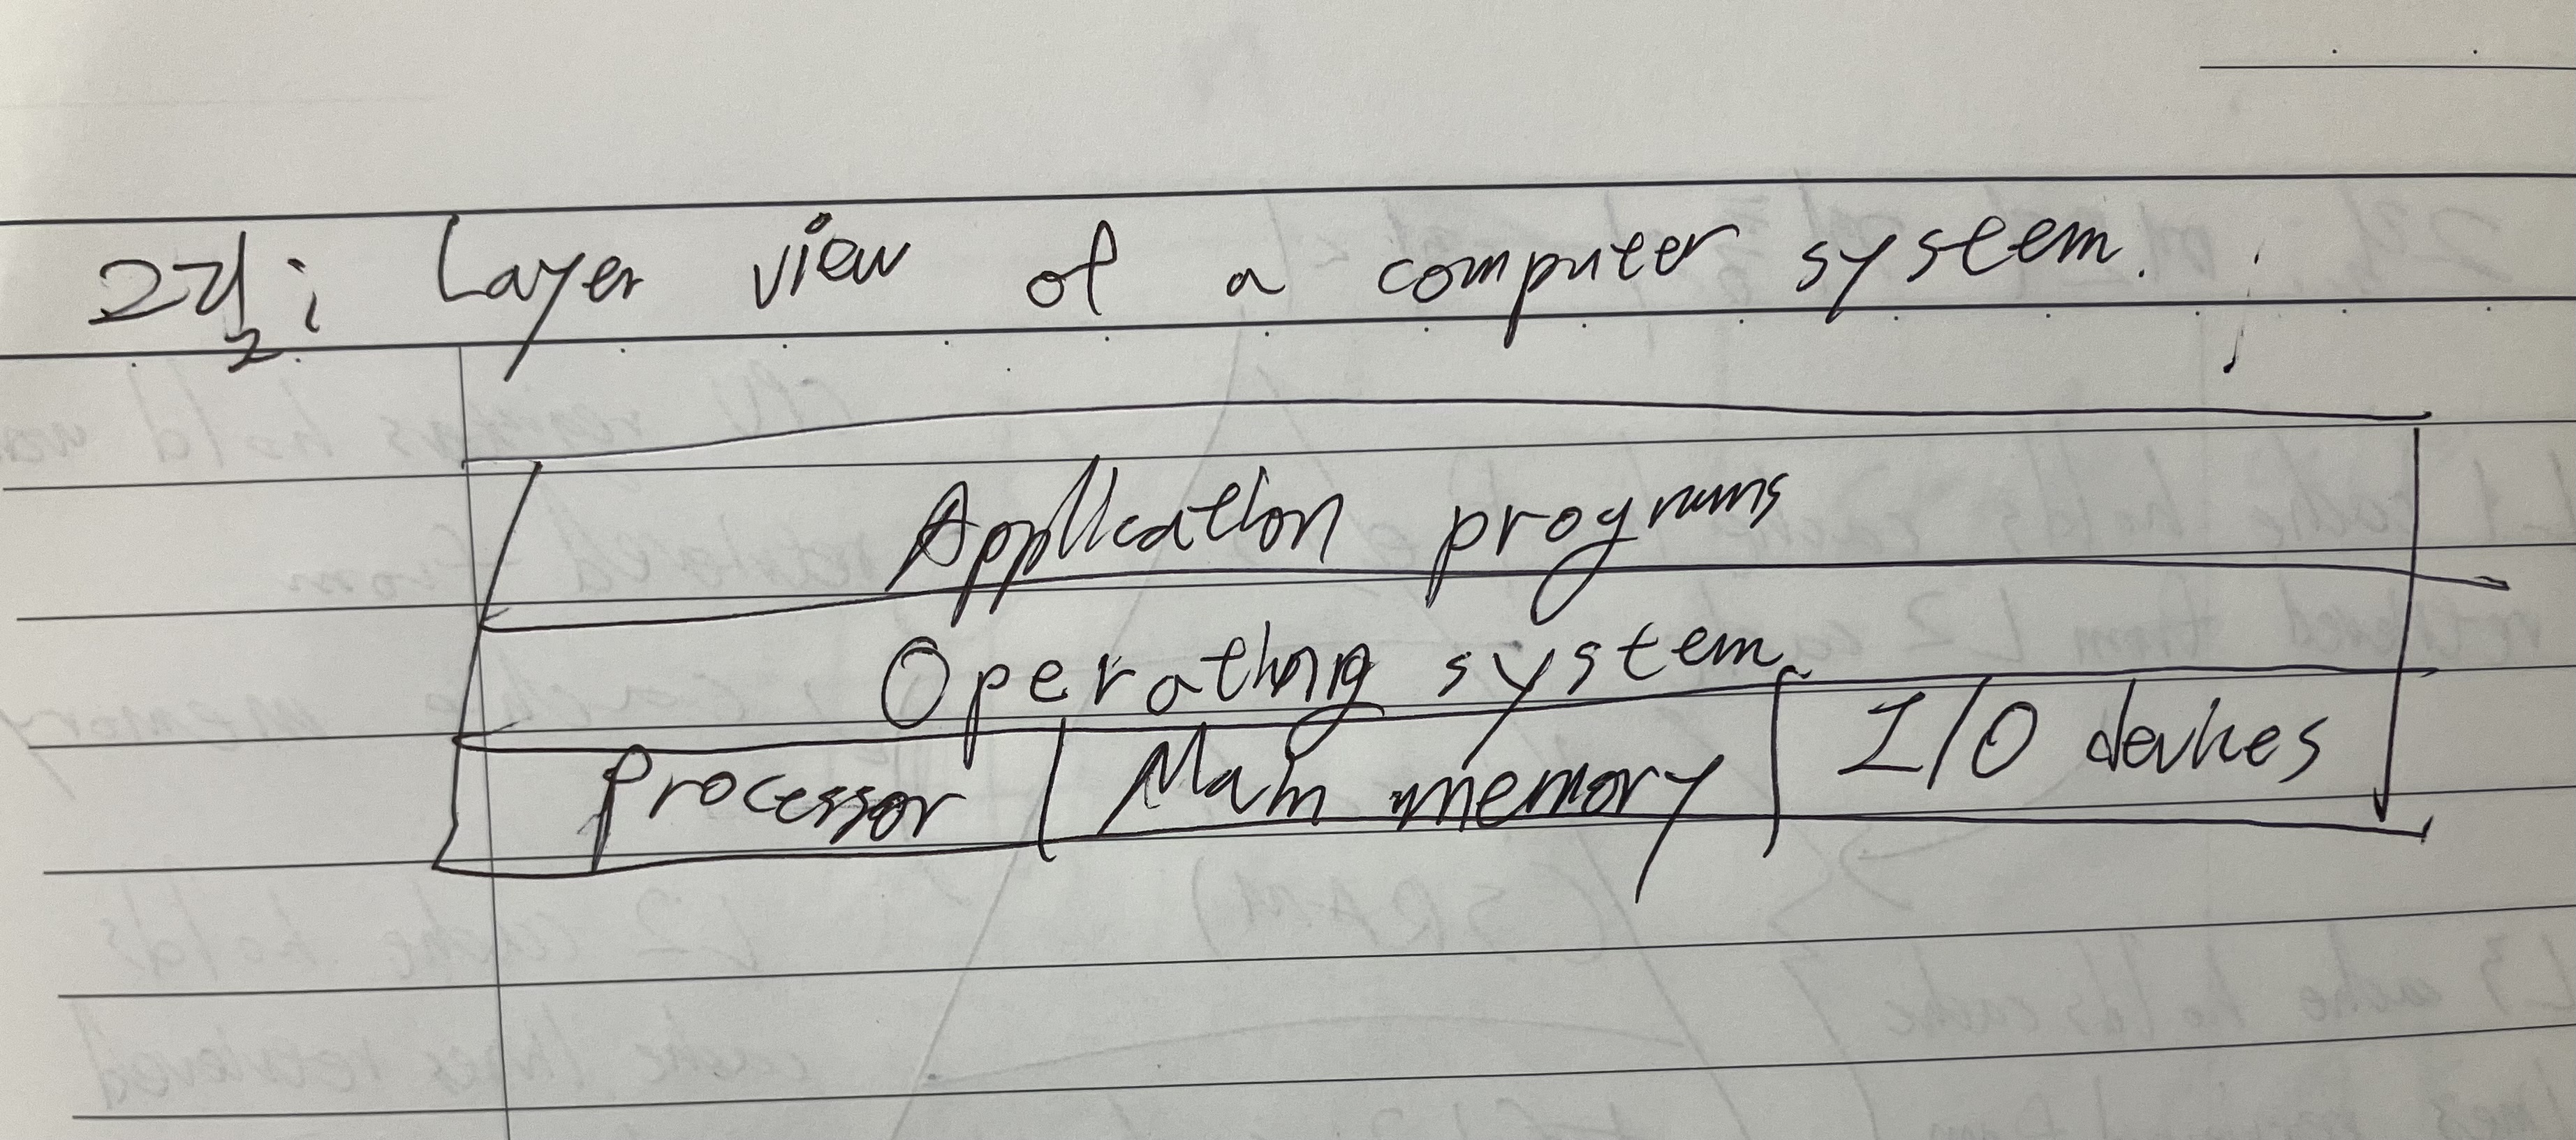 그림2: Layer view of a computer system.
Application programs
Operating system
Processor Main memory I/O devices